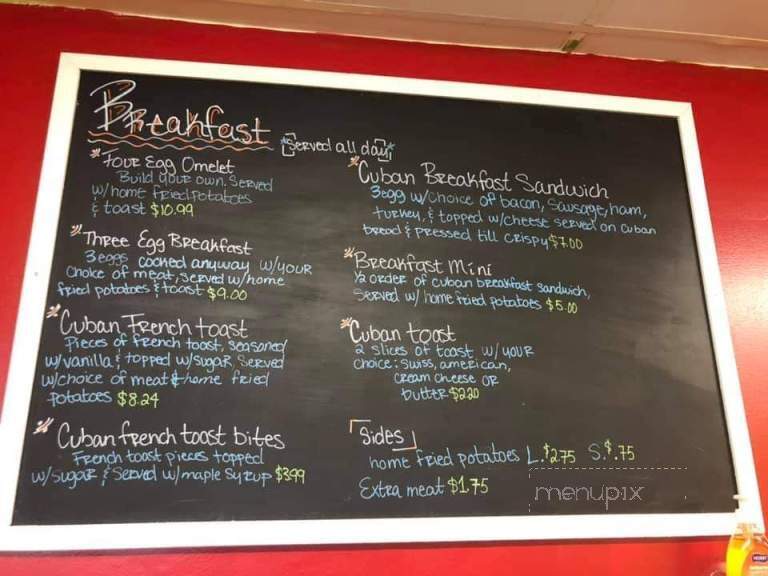 Breakfast
*Served all day*
*Four Egg Omelet
Build your own. Served
w/home fried potatoes
& toast $10.99
*Three Egg Breakfast
3 eggs cooked anyway w/your
choice of meat, served w/home
fried potatoes & toast $9.00
*Cuban French toast
Pieces of french toast, seasoned
w/vanilla & topped w/sugar, Served
w/choice of meat & home fried
potatoes $8.24
*Cuban french toast bites
French toast pieces topped
w/sugar & Served w/maple syrup $3.99
*Cuban Breakfast Sandwich
3egg w/choice of bacon, sausage, ham,
turkey, & topped w/cheese served on cuban
bread & pressed till crispy $7.00
*Breakfast Mini
1/2 order of cuban breakfast sandwich,
served w/ home fried potatoes $5.00
*Cuban toast
2 slices of toast w/your
choice: swiss, american,
cream cheese or
butter $2.20
Sides
home fried potatoes L.$2.75 S.$.75
Extra meat $1.75
menupix